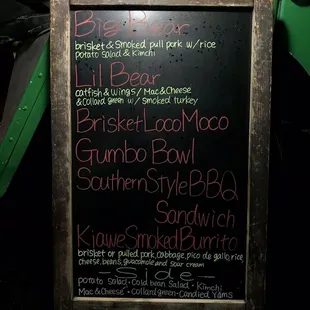 Big Bear
brisket & Smoked pull pork w/rice
potato salad & Kimchi
Lil Bear
catfish & Wings / Mac & Cheese
& Collard green w/ smoked turkey
Brisket Loco Moco
Gumbo Bowl
Southern Style BBQ
Sandwich
Kiawe Smoked Burrito
brisket or pulled pork, cabbage, pico de gallo, rice,
cheese, beans, guacamole and sour cream
- Side -
potato Salad · Cold bean Salad · Kimchi
Mac & Cheese · collard green · Candied Yams